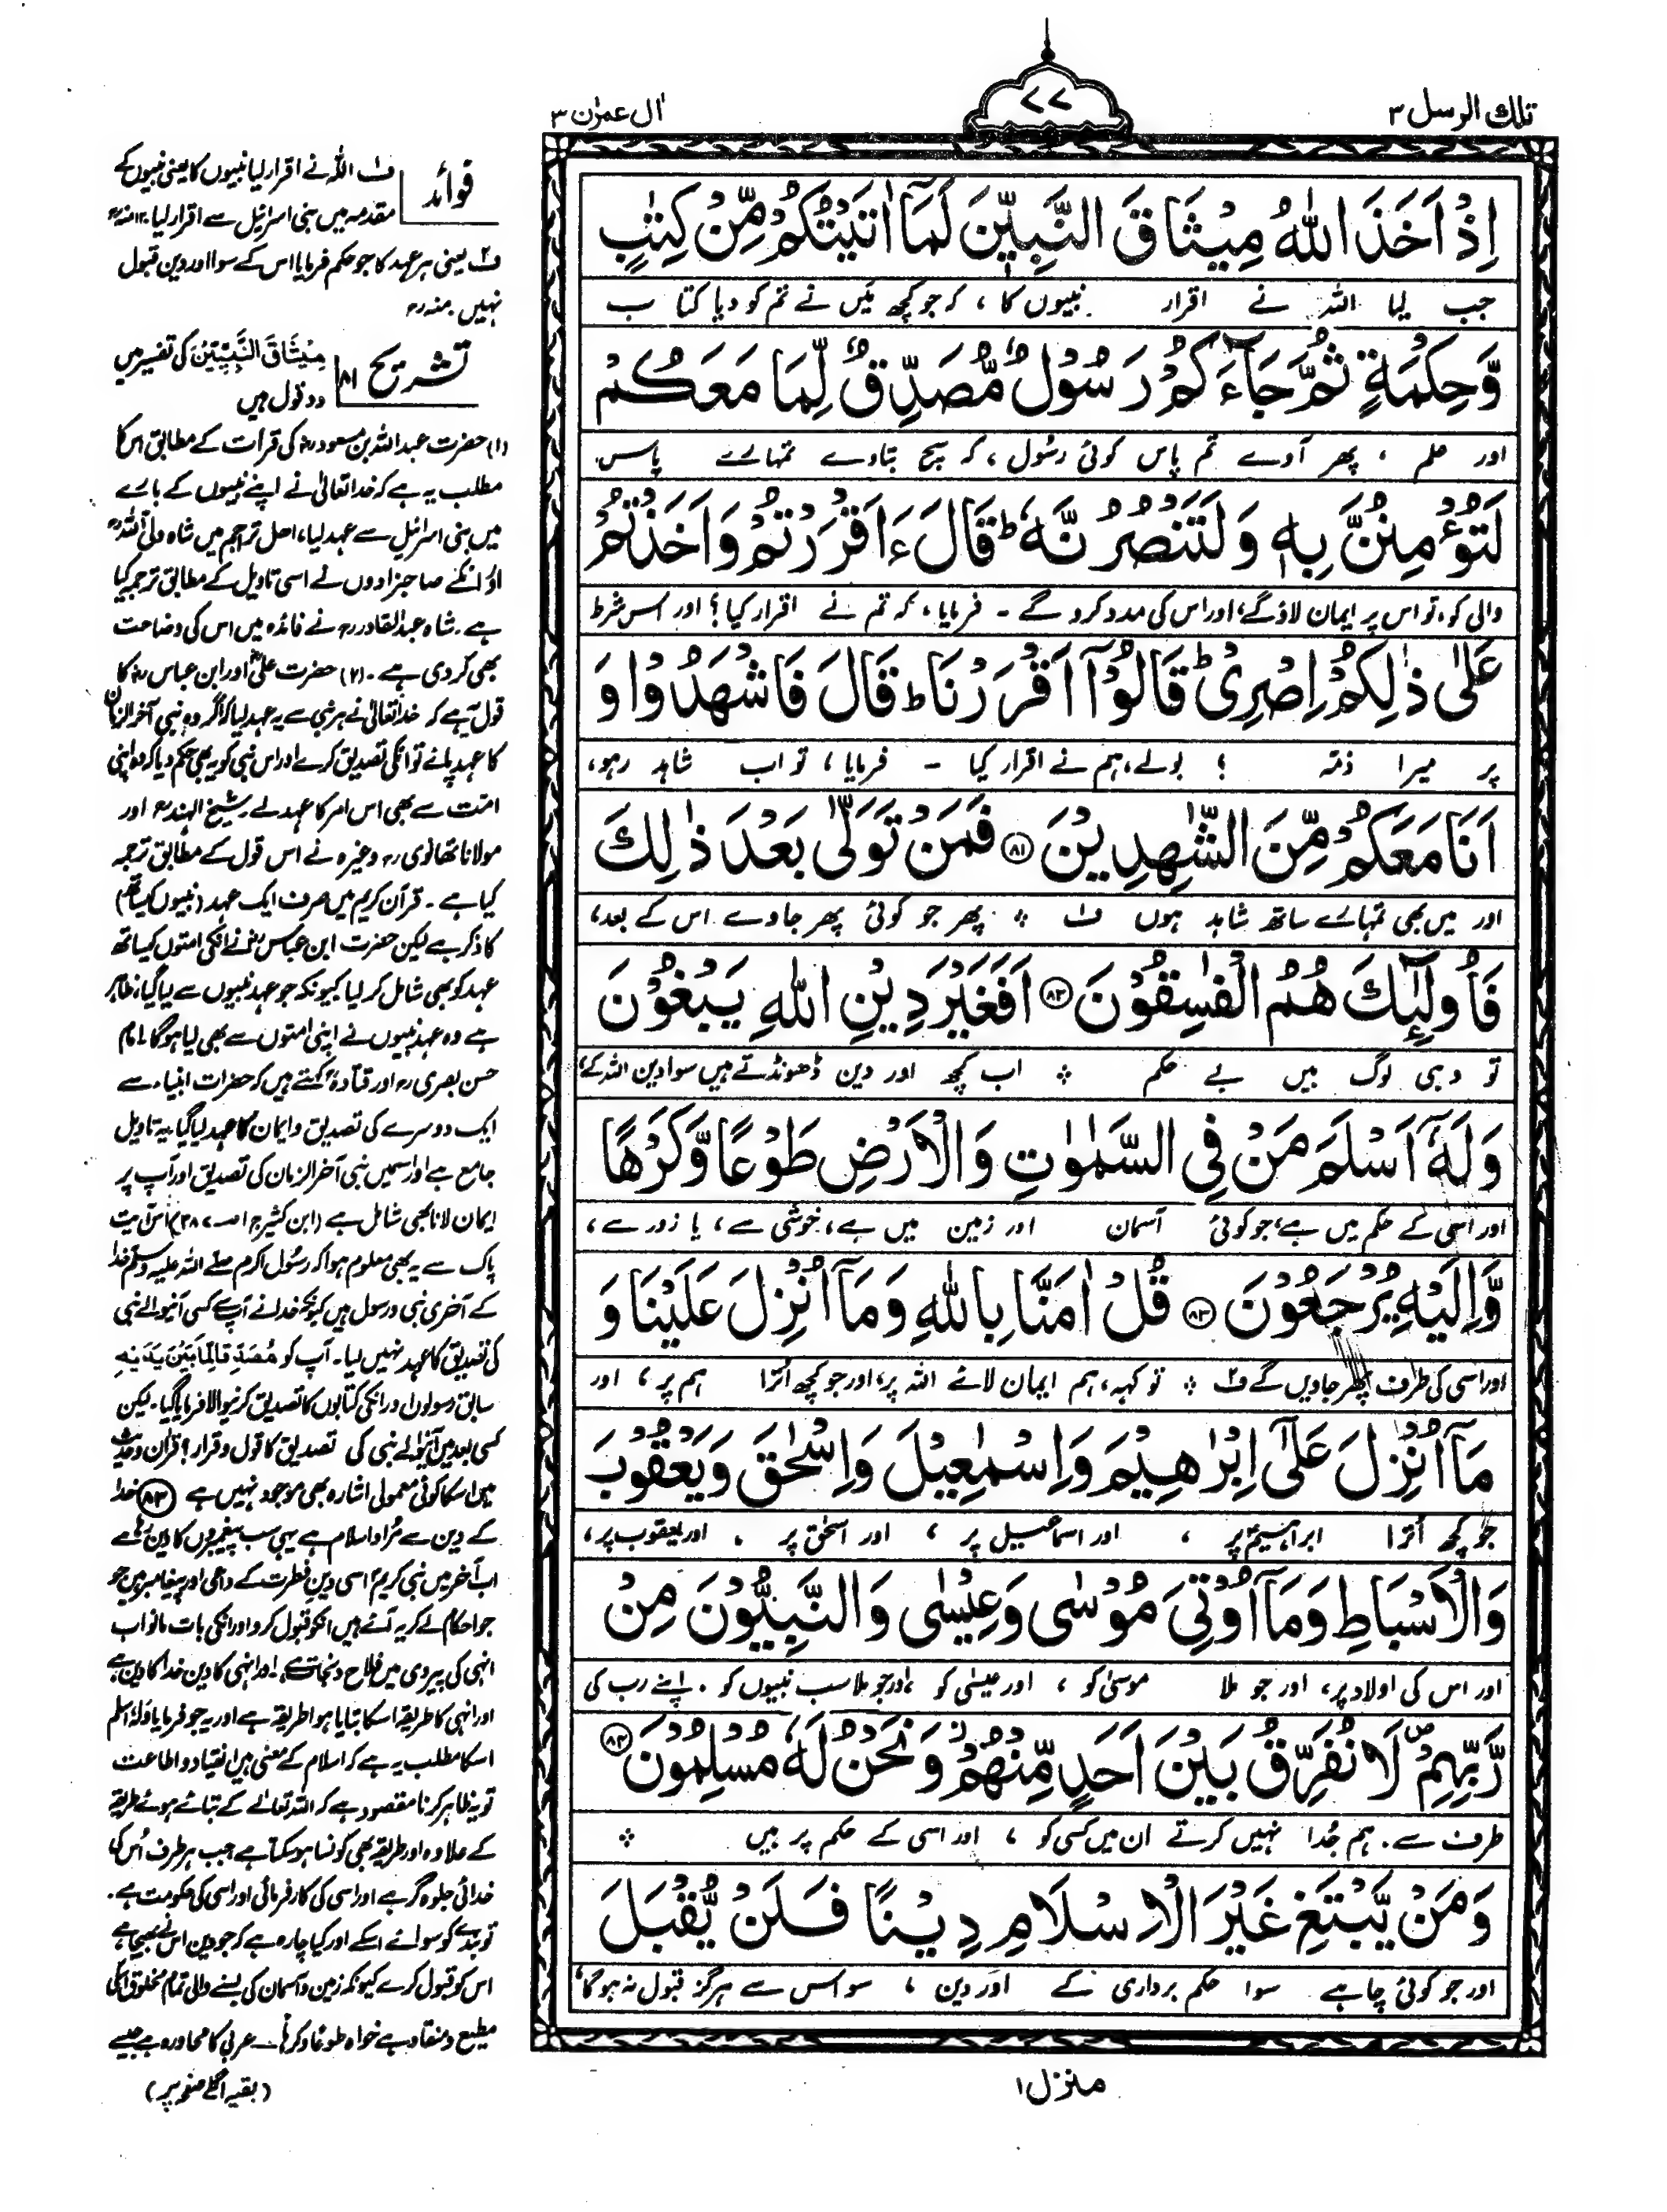 تلك الرسل ٣
٧٧
اٰل عمرٰن ٣
اِذْ اَخَذَ اللّٰهُ مِيْثَاقَ النَّبِيّٖنَ لَمَاۤ اٰتَيْتُكُمْ مِّنْ كِتٰبٍ
جب لیا اللہ نے اقرار نبیوں کا، کہ جو کچھ میں نے تم کو دیا کتاب
وَّحِكْمَةٍ ثُمَّ جَآءَكُمْ رَسُوْلٌ مُّصَدِّقٌ لِّمَا مَعَكُمْ
اور علم ، پھر آوے تم پاس کوئی رسول، کہ سچ بتاوے تمہارے پاس
لَتُؤْمِنُنَّ بِهٖ وَلَتَنْصُرُنَّهٗ ؕ قَالَ ءَاَقْرَرْتُمْ وَاَخَذْتُمْ
والی کو، تو اس پر ایمان لاؤ گے، اور اس کی مدد کرو گے ۔ فرمایا، کہ تم نے اقرار کیا؟ اور اس شرط
عَلٰى ذٰلِكُمْ اِصْرِىْ ؕ قَالُوْۤا اَقْرَرْنَا ؕ قَالَ فَاشْهَدُوْا وَ
پر میرا ذمہ ؟ بولے، ہم نے اقرار کیا ۔ فرمایا، تو اب شاہد رہو،
اَنَا مَعَكُمْ مِّنَ الشّٰهِدِيْنَ ﴿٨١﴾ فَمَنْ تَوَلّٰى بَعْدَ ذٰلِكَ
اور میں بھی تمہارے ساتھ شاہد ہوں ف۱ ۔ پھر جو کوئی پھر جاوے اس کے بعد،
فَاُولٰٓئِكَ هُمُ الْفٰسِقُوْنَ ﴿٨٢﴾ اَفَغَيْرَ دِيْنِ اللّٰهِ يَبْغُوْنَ
تو وہی لوگ ہیں بے حکم ۔ اب کچھ اور دین ڈھونڈتے ہیں سوا دین اللہ کے،
وَلَهٗۤ اَسْلَمَ مَنْ فِى السَّمٰوٰتِ وَالْاَرْضِ طَوْعًا وَّكَرْهًا
اور اسی کے حکم میں ہے، جو کوئی آسمان اور زمین میں ہے، خوشی سے، یا زور سے،
وَّاِلَيْهِ يُرْجَعُوْنَ ﴿٨٣﴾ قُلْ اٰمَنَّا بِاللّٰهِ وَمَاۤ اُنْزِلَ عَلَيْنَا وَ
اور اسی کی طرف پھر جاویں گے ف۲ ۔ تو کہہ، ہم ایمان لائے اللہ پر، اور جو کچھ اُترا ہم پر، اور
مَاۤ اُنْزِلَ عَلٰٓى اِبْرٰهِيْمَ وَاِسْمٰعِيْلَ وَاِسْحٰقَ وَيَعْقُوْبَ
جو کچھ اُترا ابراہیم پر ، اور اسماعیل پر ، اور اسحٰق پر ، اور یعقوب پر،
وَالْاَسْبَاطِ وَمَاۤ اُوْتِىَ مُوْسٰى وَعِيْسٰى وَالنَّبِيُّوْنَ مِنْ
اور اس کی اولاد پر، اور جو ملا موسیٰ کو ، اور عیسٰی کو ، اور جو ملا سب نبیوں کو ، اپنے رب کی
رَّبِّهِمْ ۪ لَا نُفَرِّقُ بَيْنَ اَحَدٍ مِّنْهُمْ ۫ وَنَحْنُ لَهٗ مُسْلِمُوْنَ ﴿٨٤﴾
طرف سے ۔ ہم جُدا نہیں کرتے ان میں کسی کو ، اور اسی کے حکم پر ہیں
وَمَنْ يَّبْتَغِ غَيْرَ الْاِسْلَامِ دِيْنًا فَلَنْ يُّقْبَلَ
اور جو کوئی چاہے سوا حکم برداری کے اور دین ، سو اس سے ہرگز قبول نہ ہوگا،
منزل ۱
فوائد
ف۱ اللہ نے اقرار لیا نبیوں کا یعنی نبیوں کے
مقدمہ میں بنی اسرائیل سے اقرار لیا۔ ۱۲ منہ رح
ف۲ یعنی ہر عہد کا جو حکم فرمایا اس کے سوا اور دین قبول
نہیں۔ منہ رح
تشریح
۸۱ مِيْثَاقَ النَّبِيّٖنَ کی تفسیر میں
دو قول ہیں
(۱) حضرت عبداللہ بن مسعود رض کی قرأت کے مطابق اس کا
مطلب یہ ہے کہ خدا تعالیٰ نے اپنے نبیوں کے بارے
میں بنی اسرائیل سے عہد لیا، اصل تراجم میں شاہ ولی اللہ رح
اور انکے صاحبزادوں نے اسی تاویل کے مطابق ترجمہ کیا
ہے۔ شاہ عبدالقادر رح نے فائدہ میں اس کی وضاحت
بھی کر دی ہے۔ (۲) حضرت علی رض اور ابن عباس رض کا
قول یہ ہے کہ خدا تعالیٰ نے ہر نبی سے یہ عہد لیا کہ اگر وہ نبی آخر الزمان
کا عہد پائے تو انکی تصدیق کرے اور اس نبی کو یہ بھی حکم دیا کہ وہ اپنی
امت سے بھی اس امر کا عہد لے۔ شیخ الہند رح اور
مولانا تھانوی رح وغیرہ نے اس قول کے مطابق ترجمہ
کیا ہے۔ قرآن کریم میں صرف ایک عہد (نبیوں کیساتھ)
کا ذکر ہے لیکن حضرت ابن عباس رض نے انکی امتوں کیساتھ
عہد کو بھی شامل کر لیا کیونکہ جو عہد نبیوں سے لیا گیا، ظاہر
ہے وہ عہد نبیوں نے اپنی امتوں سے بھی لیا ہوگا۔ امام
حسن بصری رح اور قتادہ رح کہتے ہیں کہ حضرات انبیاء سے
ایک دوسرے کی تصدیق و ایمان کا عہد لیا گیا۔ یہ تاویل
جامع ہے اور اسمیں نبی آخر الزمان کی تصدیق اور آپ پر
ایمان لانا بھی شامل ہے (ابن کثیر ج۱ ص ۳۸۷) اس آیت
پاک سے یہ بھی معلوم ہوا کہ رسول اکرم صلے اللہ علیہ وسلم خدا
کے آخری نبی و رسول ہیں کیونکہ خدا نے آپ سے کسی آنیوالے نبی
کی تصدیق کا عہد نہیں لیا۔ آپ کو مُصَدِّقًا لِّمَا بَيْنَ يَدَيْهِ
سابق رسولوں اور انکی کتابوں کا تصدیق کرنیوالا فرمایا گیا۔ لیکن
کسی بعد میں آنیوالے نبی کی تصدیق کا قول و قرار؟ قرآن و حدیث
میں اسکا کوئی معمولی اشارہ بھی موجود نہیں ہے ۸۳ خدا
کے دین سے مُراد اسلام ہے یہی سب پیغمبروں کا دین رہا ہے
اب آخر میں نبی کریم اسی دین فطرت کے داعی اور پیغامبر ہیں جو
جو احکام لے کر یہ آئے ہیں انکو قبول کرو اور انکی بات مانو اب
انہی کی پیروی میں فلاح و نجات ہے، اور انہی کا دین خدا کا دین ہے
اور انہی کا طریقہ اسکا بتایا ہوا طریقہ ہے اور یہ جو فرمایا وَلَهٗ اسلم
اسکا مطلب یہ ہے کہ اسلام کے معنی ہیں انقیاد و اطاعت
تو یہ ظاہر کرنا مقصود ہے کہ اللہ تعالےٰ کے بتائے ہوئے طریقہ
کے علاوہ اور طریقہ بھی کونسا ہوسکتا ہے جب ہر طرف اُس کی
خدائی جلوہ گر ہے اور اسی کی کارفرمائی اور اسی کی حکومت ہے۔
تو بندے کو سوائے اسکے اور کیا چارہ ہے کہ جو دین اس نے بھیجا ہے
اس کو قبول کرے کیونکہ زمین و آسمان کی بسنے والی تمام مخلوق اسکی
مطیع و منقاد ہے خواہ طوعًا و کرہًا۔ عربی کا محاورہ ہے جیسے
(بقیہ اگلے صفحہ پر)